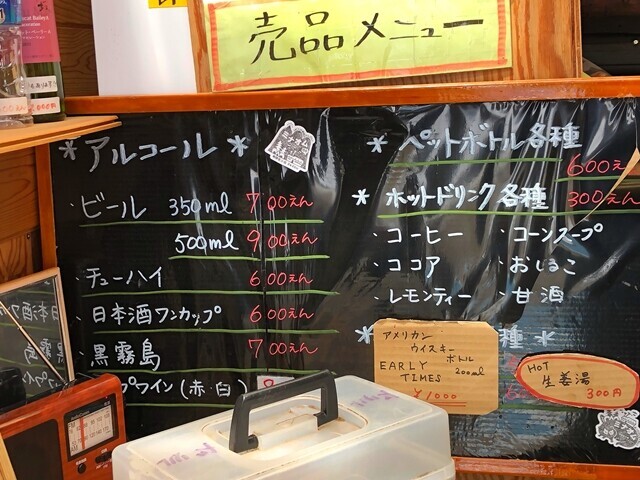 売品メニュー
* アルコール *
・ビール 350ml 700えん
500ml 900えん
・チューハイ 600えん
・日本酒ワンカップ 600えん
・黒霧島 700えん
プワイン（赤・白）
* ペットボトル各種
600え
* ホットドリンク各種 300えん
・コーヒー ・コーンスープ
・ココア ・おしるこ
・レモンティー ・甘酒
* 種 *
アメリカン
ウイスキー
ボトル
EARLY 200ml
TIMES
¥1000
HOT
生姜湯
300円